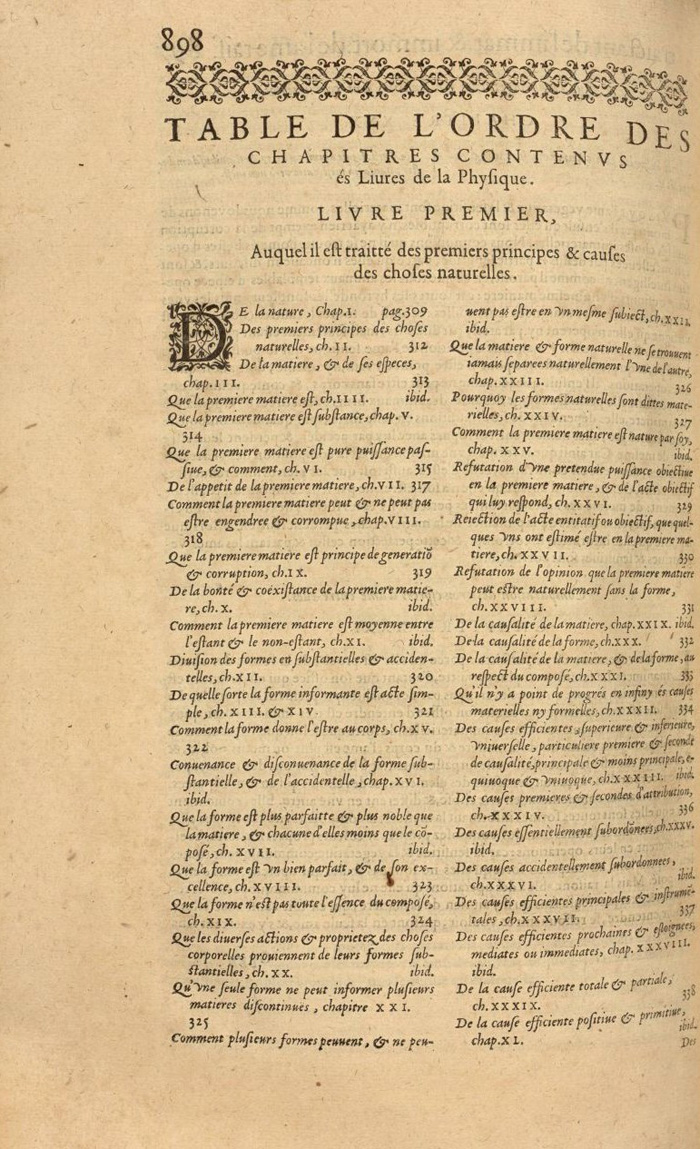 898
TABLE DE L'ORDRE DES
CHAPITRES CONTENVS
és Liures de la Physique.
LIVRE PREMIER,
Auquel il est traitté des premiers principes & causes
des choses naturelles.
DE la nature, Chap.I. pag.309
Des premiers principes des choses
naturelles, ch.II. 312
De la matiere, & de ses especes,
chap.III. 313
Que la premiere matiere est, ch.IIII. ibid.
Que la premiere matiere est substance, chap. V.
314
Que la premiere matiere est pure puissance pas-
siue, & comment, ch. VI. 315
De l'appetit de la premiere matiere, ch.VII. 317
Comment la premiere matiere peut & ne peut pas
estre engendree & corrompue, chap.VIII.
318
Que la premiere matiere est principe de generatiõ
& corruption, ch.IX. 319
De la bonté & coëxistance de la premiere matie-
re, ch.X. ibid.
Comment la premiere matiere est moyenne entre
l'estant & le non-estant, ch.XI. ibid.
Diuision des formes en substantielles & acciden-
telles, ch.XII. 320
De quelle sorte la forme informante est acte sim-
ple, ch.XIII. & XIV. 321
Comment la forme donne l'estre au corps, ch.XV.
322
Conuenance & disconuenance de la forme sub-
stantielle, & de l'accidentelle, chap.XVI.
ibid.
Que la forme est plus parfaitte & plus noble que
la matiere, & chacune d'elles moins que le cõ-
posé, ch. XVII. ibid.
Que la forme est vn bien parfait, & de son ex-
cellence, ch.XVIII. 323
Que la forme n'est pas toute l'essence du composé,
ch.XIX. 324
Que les diuerses actions & proprietez des choses
corporelles prouiennent de leurs formes sub-
stantielles, ch.XX. ibid.
Qu'vne seule forme ne peut informer plusieurs
matieres discontinues, chapitre XXI.
325
Comment plusieurs formes peuuent, & ne peu-
uent pas estre en vn mesme subiect, ch.XXII.
ibid.
Que la matiere & forme naturelle ne se trouuent
iamais separees naturellement l'vne de l'autre,
chap.XXIII. 326
Pourquoy les formes naturelles sont dittes mate-
rielles, ch.XXIV. 327
Comment la premiere matiere est nature par soy,
chap.XXV. ibid.
Refutation d'vne pretendue puissance obiectiue
en la premiere matiere, & de l'acte obiectif
qui luy respond, ch.XXVI. 329
Reiection de l'acte entitatif ou obiectif, que quel-
ques vns ont estimé estre en la premiere ma-
tiere, ch.XXVII. 330
Refutation de l'opinion que la premiere matiere
peut estre naturellement sans la forme,
ch.XXVIII. 331
De la causalité de la matiere, chap.XXIX. ibid.
De la causalité de la forme, ch.XXX. 332
De la causalité de la matiere, & de la forme, au
respect du composé, ch.XXXI. 333
Qu'il n'y a point de progrés en infiny és causes
materielles ny formelles, ch.XXXII. 334
Des causes efficientes, superieure & inferieure,
vniuerselle, particuliere premiere & seconde
de causalité, principale & moins principale, e-
quiuoque & vniuoque, ch.XXXIII. ibid.
Des causes premieres & secondes d'attribution,
ch.XXXIV. 336
Des causes essentiellement subordõnees, ch.XXXV.
ibid.
Des causes accidentellement subordonnees,
ch.XXXVI. ibid.
Des causes efficientes principales & instrumẽ-
tales, ch.XXXVII. 337
Des causes efficientes prochaines & esloignees,
mediates ou immediates, chap.XXXVIII.
ibid.
De la cause efficiente totale & partiale,
ch.XXXIX. 338
De la cause efficiente positiue & primitiue,
chap.XL. ibid.
Des